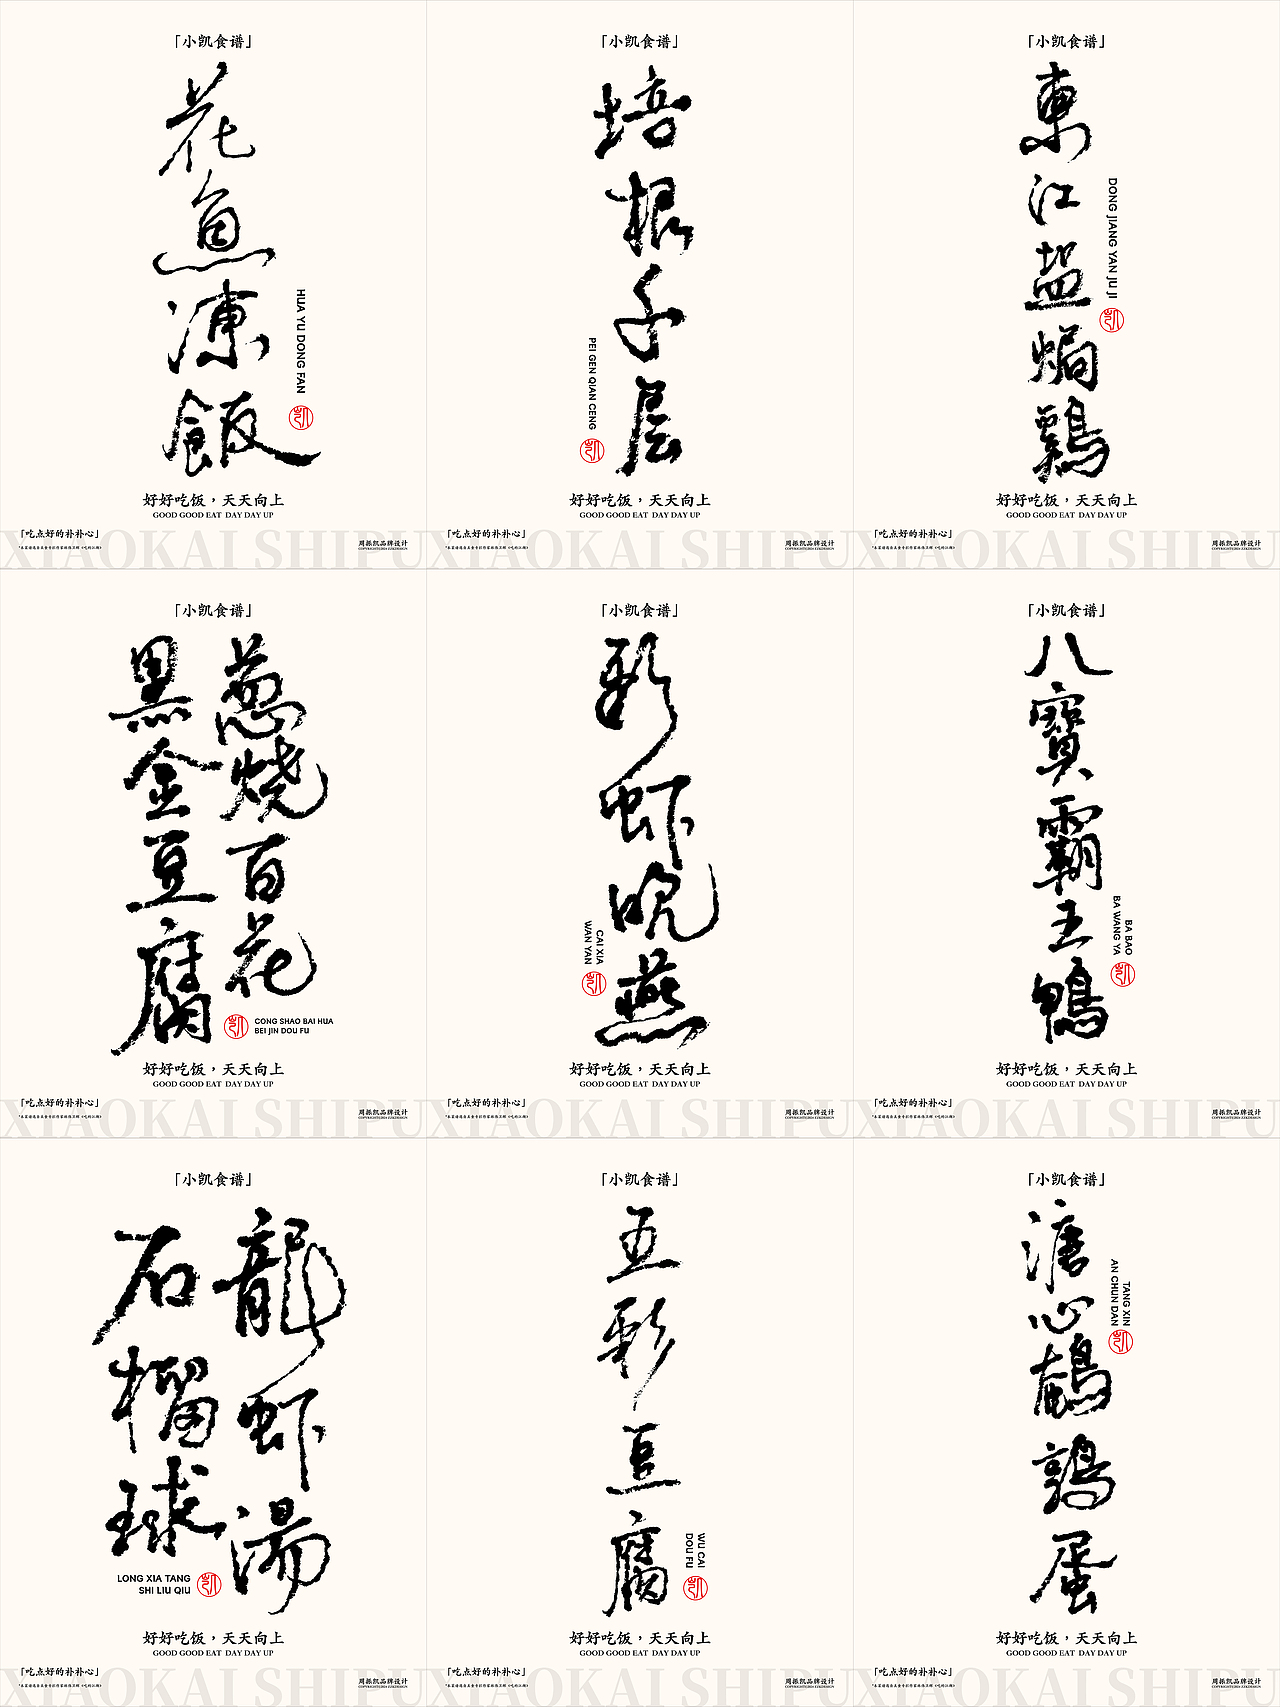 「小凯食谱」
花魚凍飯
HUA YU DONG FAN
凯
好好吃饭，天天向上
GOOD GOOD EAT DAY DAY UP
「吃点好的朴朴心」
周振凯品牌设计
XIAOKAI SHIPU
「小凯食谱」
培根千层
PEI GEN QIAN CENG
凯
好好吃饭，天天向上
GOOD GOOD EAT DAY DAY UP
「吃点好的朴朴心」
周振凯品牌设计
XIAOKAI SHIPU
「小凯食谱」
東江盐焗鷄
DONG JIANG YAN JU JI
凯
好好吃饭，天天向上
GOOD GOOD EAT DAY DAY UP
「吃点好的朴朴心」
周振凯品牌设计
XIAOKAI SHIPU
「小凯食谱」
葱烧百花
黑金豆腐
凯
CONG SHAO BAI HUA
BEI JIN DOU FU
好好吃饭，天天向上
GOOD GOOD EAT DAY DAY UP
「吃点好的朴朴心」
周振凯品牌设计
XIAOKAI SHIPU
「小凯食谱」
彩虾晚燕
CAI XIA
WAN YAN
凯
好好吃饭，天天向上
GOOD GOOD EAT DAY DAY UP
「吃点好的朴朴心」
周振凯品牌设计
XIAOKAI SHIPU
「小凯食谱」
八寶霸王鴨
BA BAO
BA WANG YA
凯
好好吃饭，天天向上
GOOD GOOD EAT DAY DAY UP
「吃点好的朴朴心」
周振凯品牌设计
XIAOKAI SHIPU
「小凯食谱」
龍虾湯
石榴球
LONG XIA TANG
SHI LIU QIU
凯
好好吃饭，天天向上
GOOD GOOD EAT DAY DAY UP
「吃点好的朴朴心」
周振凯品牌设计
XIAOKAI SHIPU
「小凯食谱」
五彩豆腐
WU CAI
DOU FU
凯
好好吃饭，天天向上
GOOD GOOD EAT DAY DAY UP
「吃点好的朴朴心」
周振凯品牌设计
XIAOKAI SHIPU
「小凯食谱」
溏心鵪鶉蛋
TANG XIN
AN CHUN DAN
凯
好好吃饭，天天向上
GOOD GOOD EAT DAY DAY UP
「吃点好的朴朴心」
周振凯品牌设计
XIAOKAI SHIPU